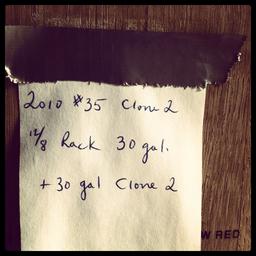 2010 #35 Clone 2
12/8 Rack 30 gal.
+ 30 gal Clone 2
W RED